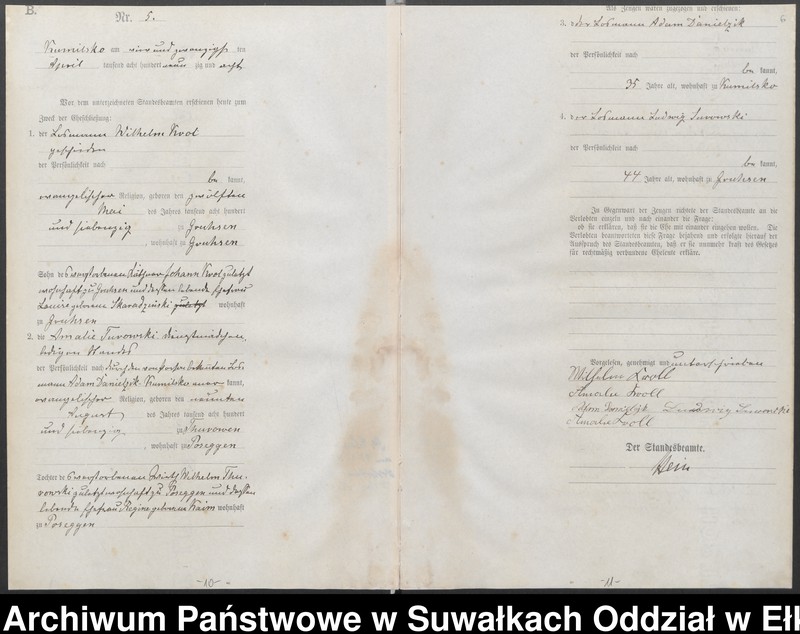 B.
Nr. 5.
Kumilsko am vier und zwanzigsten
April tausend acht hundert neun zig und acht
Vor dem unterzeichneten Standesbeamten erschienen heute zum
Zweck der Eheschließung:
1. der Losmann Wilhelm Krol
geschieden
der Persönlichkeit nach
be kannt,
evangelischer Religion, geboren den zwölften
Mai des Jahres tausend acht hundert
und siebenzig zu Gruhsen
, wohnhaft zu Gruhsen
Sohn des verstorbenen Käthner Johann Krol zuletzt
wohnhaft zu Gruhsen und dessen lebende Ehefrau
Louise geborene Skaradzinski zuletzt wohnhaft
zu Gruhsen
2. die Amalie Turowski Dienstmädchen,
ledigen Standes
der Persönlichkeit nach durch den von Person bekannten Los-
mann Adam Danielzik Kumilsko aner kannt,
evangelischer Religion, geboren den neunten
August des Jahres tausend acht hundert
und siebenzig zu Thurowen
, wohnhaft zu Poseggen
Tochter des verstorbenen Wirth Wilhelm Thu-
rowski zuletzt wohnhaft zu Poseggen und dessen
lebende Ehefrau Regine geborene Kaim wohnhaft
zu Poseggen
-10-
6
Als Zeugen waren zugezogen und erschienen:
3. der Losmann Adam Danielzik
der Persönlichkeit nach
be kannt,
35 Jahre alt, wohnhaft zu Kumilsko
4. der Losmann Ludwig Surowski
der Persönlichkeit nach
be kannt,
44 Jahre alt, wohnhaft zu Gruhsen
In Gegenwart der Zeugen richtete der Standesbeamte an die
Verlobten einzeln und nach einander die Frage:
ob sie erklären, daß sie die Ehe mit einander eingehen wollen. Die
Verlobten beantworteten diese Frage bejahend und erfolgte hierauf der
Ausspruch des Standesbeamten, daß er sie nunmehr kraft des Gesetzes
für rechtmäßig verbundene Eheleute erkläre.
Vorgelesen, genehmigt und unterschrieben
Wilhelm Kroll
Amalie Kroll
Adam Danielzik Ludwig Surowski
Amalie Kroll
Der Standesbeamte.
Hein
-11-
Archiwum Państwowe w Suwałkach Oddział w Ełk